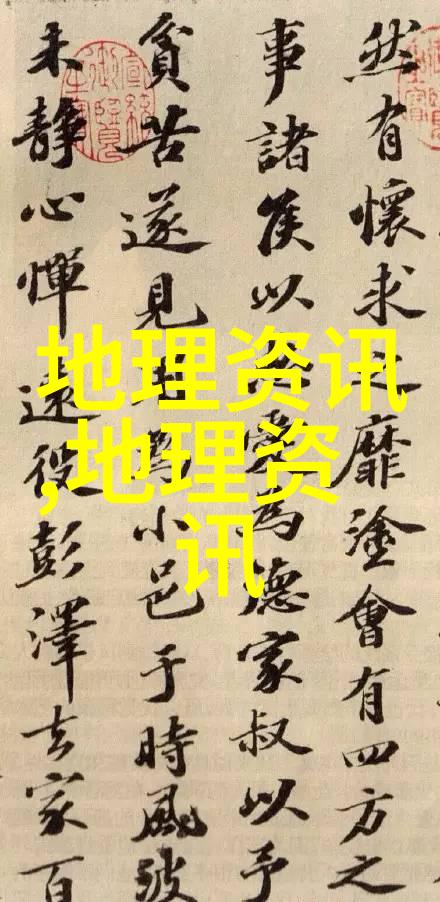 然有懷求之靡塗會有四方之
事諸侯以愛為德家叔以予
貧苦遂見為小邑于時風波
未靜心憚遠役彭澤去家百
地理资讯
,地理资
讯